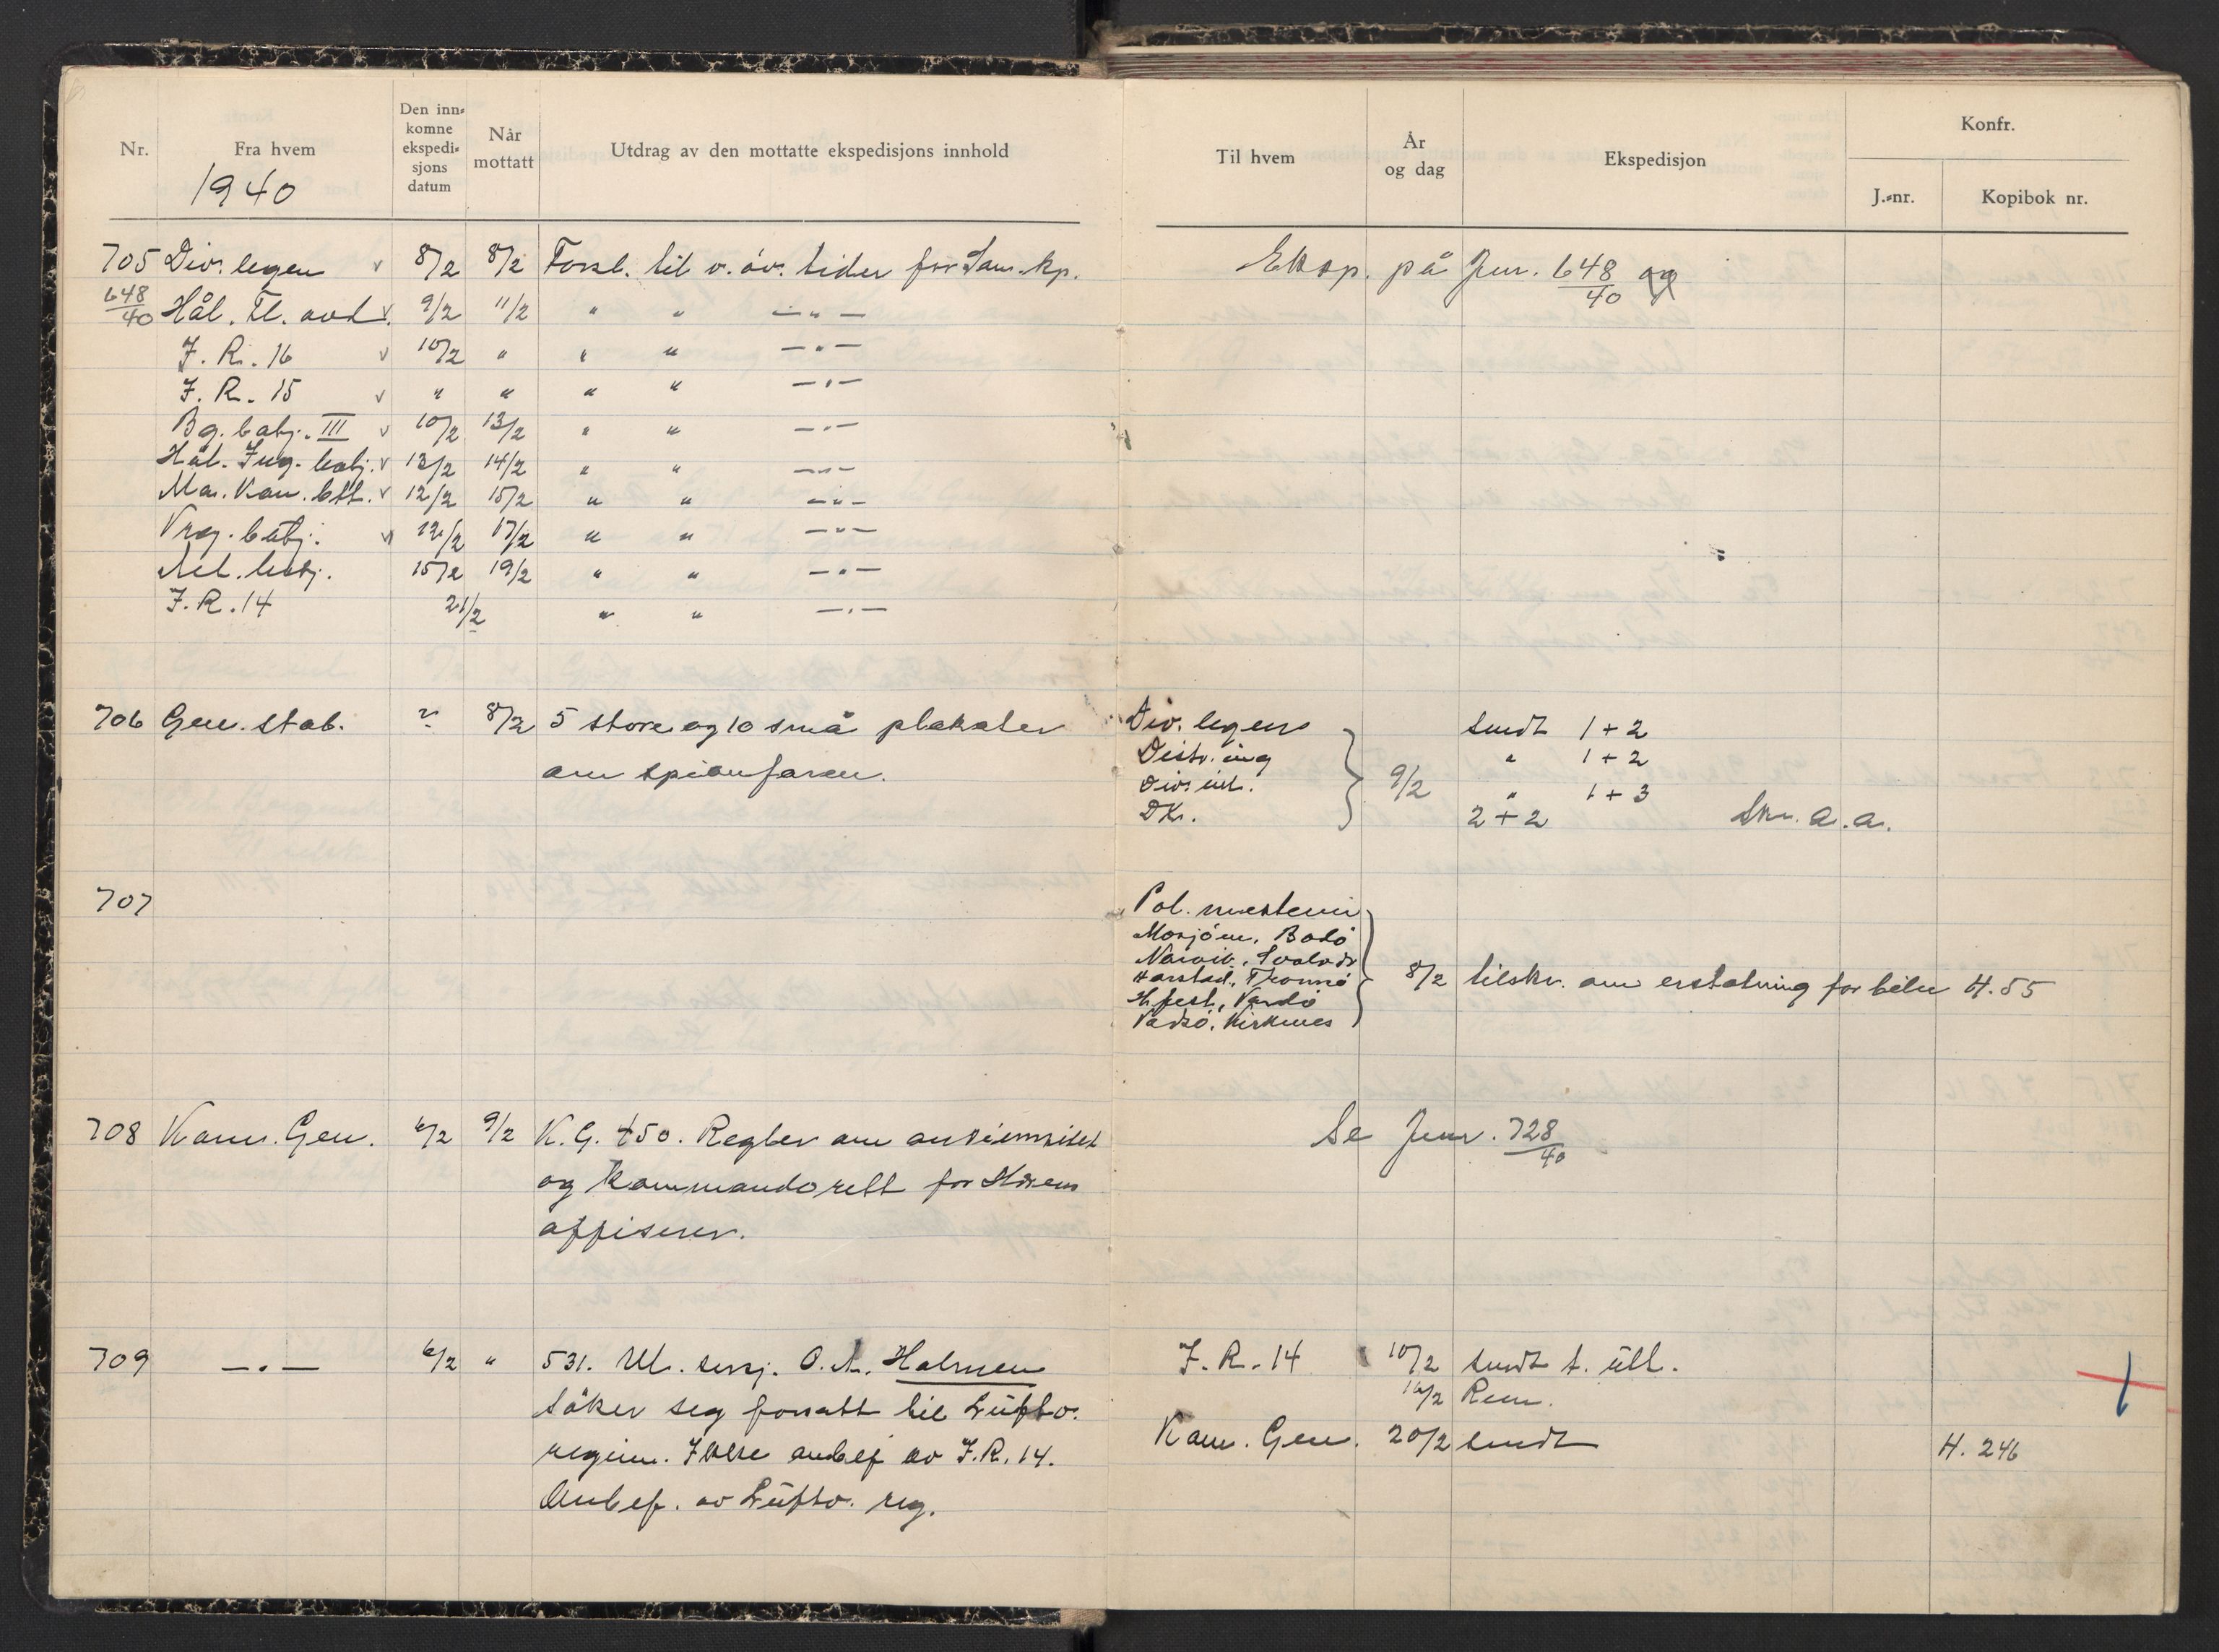 Nr.
Fra hvem
Den inn-
komne
ekspedi-
sjons
datum
Når
mottatt
Utdrag av den mottatte ekspedisjons innhold
1940
705 Div. legen v 8/2 8/2 Forsl. til v. öv. tider for San. kp.
648/40 Hål. Fl. avd. v 9/2 11/2 " " —"—
I. R. 16 v 10/2 " " " —"—
I. R. 15 v " " " " —"—
Bg. batj. III v 10/2 13/2 " " —"—
Hål. Ing. batj. v 13/2 14/2 " " —"—
Mo. Kan. btt. v 12/2 15/2 " " —"—
Vrg. batj. v 12/2 17/2 " " —"—
Alt. batj. 15/2 19/2 " " —"—
I. R. 14 21/2 " " —"—
706 Gen. stab. ? 8/2 5 store og 10 små plakater
om spionfaren.
707
708 Kom. Gen. 6/2 9/2 K. G. 450. Regler om ansiennitet
og kommandorett for Hærens
offiserer.
709 —"— 6/2 " 531. Ul. serj. O. A. Holmen
söker seg forsatt til Luftv.
regim. Ikke anbef av I.R. 14.
Anbef. av Luftv. reg.
Til hvem
År
og dag
Ekspedisjon
Konfr.
J.-nr.
Kopibok nr.
Eksp. på Jnr. 648/40
Div. legen sendt 1 + 2
Distr. ing " 1 + 2
Div. int. 9/2 " 1 + 3
DK. 2 + 2 Skr. a. a.
Pol. mesteren i
Mosjöen, Bodö
Narvik, Svolvær
Harstad, Tromsö 8/2 tilskr. om erstatning for biler H. 55
H.fest, Vardö
Vadsö, Kirkenes
Se Jnr. 728/40
I. R. 14 10/2 sendt t. utt.
16/2 Rem.
Kom. Gen. 20/2 sendt H. 246